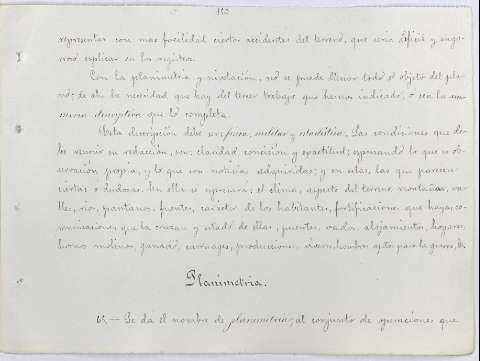 153
representar con mas facilidad ciertos accidentes del terreno, que seria dificil y engor-
roso esplicar en los registros.
Con la planimetria y nivelacion, no se puede llenar todo el objeto del pla-
no; de ahi la necesidad que hay del tercer trabajo que hemos indicado, o sea la me-
moria descriptiva que lo completa.
Esta descripcion debe ser: fisica, militar y estadistica. Las condiciones que de-
be reunir su redaccion, son: claridad, concision y exactitud; separando lo que es ob-
servacion propia, y lo que son noticias adquiridas; y en estas, las que parecen
ciertas o dudosas. En ella se espresara; el clima, aspecto del terreno montañas, va-
lles, rios, pantanos, fuentes, caracter de los habitantes, fortificaciones que haya, co-
municaciones que la cruzan y estado de ellas, puentes, vados, alojamientos, hogares,
hornos molinos, ganado, carruages, producciones, viveres, hombres aptos para la guerra, &.
Planimetria.
6.— Se da el nombre de planimetria, al conjunto de operaciones que